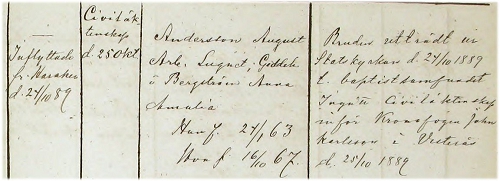 Inflyttade
fr. Haraker
d. 24/10 89
Civiläk
tenskap
d. 25 Okt
Andersson August
Arb. Lugnet, Gideltn
o Bergström Anna
Amalia
Han f. 27/1 63
Hon f. 16/10 67.
Bruden utträdt ur
Statskyrkan d. 24/10 1889
t. baptistsamfundet
Ingått Civiläktenskap
inför Kronofogen John
Karlsson i Vesterås
d. 25/10 1889